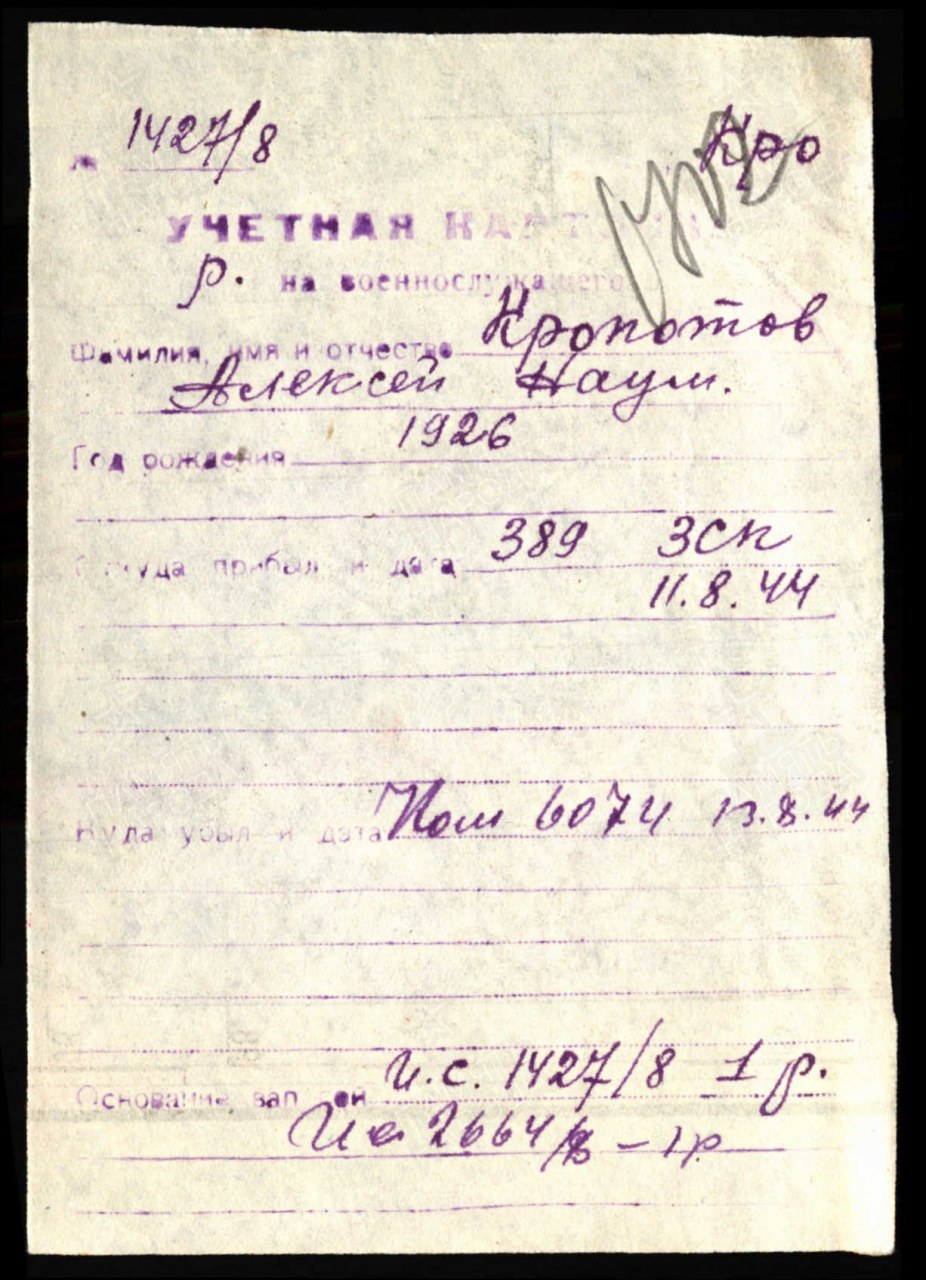 № 1427/8 Кро
УЧЕТНАЯ КАРТОЧКА
р. на военнослужащего
Фамилия, имя и отчество Кропотов
Алексей Наум.
Год рождения 1926
Откуда прибыл и дата 389 ЗСП
11.8.44
Куда убыл и дата 6074 13.8.44
Основание записей и.с. 1427/8 1 р.
2664/8 – 1 р.